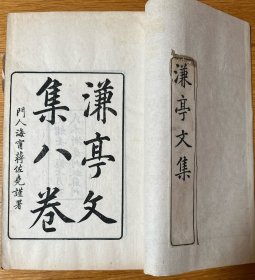 濂亭文集
濂亭文
集八卷
門人海寧蔣佐堯謹署